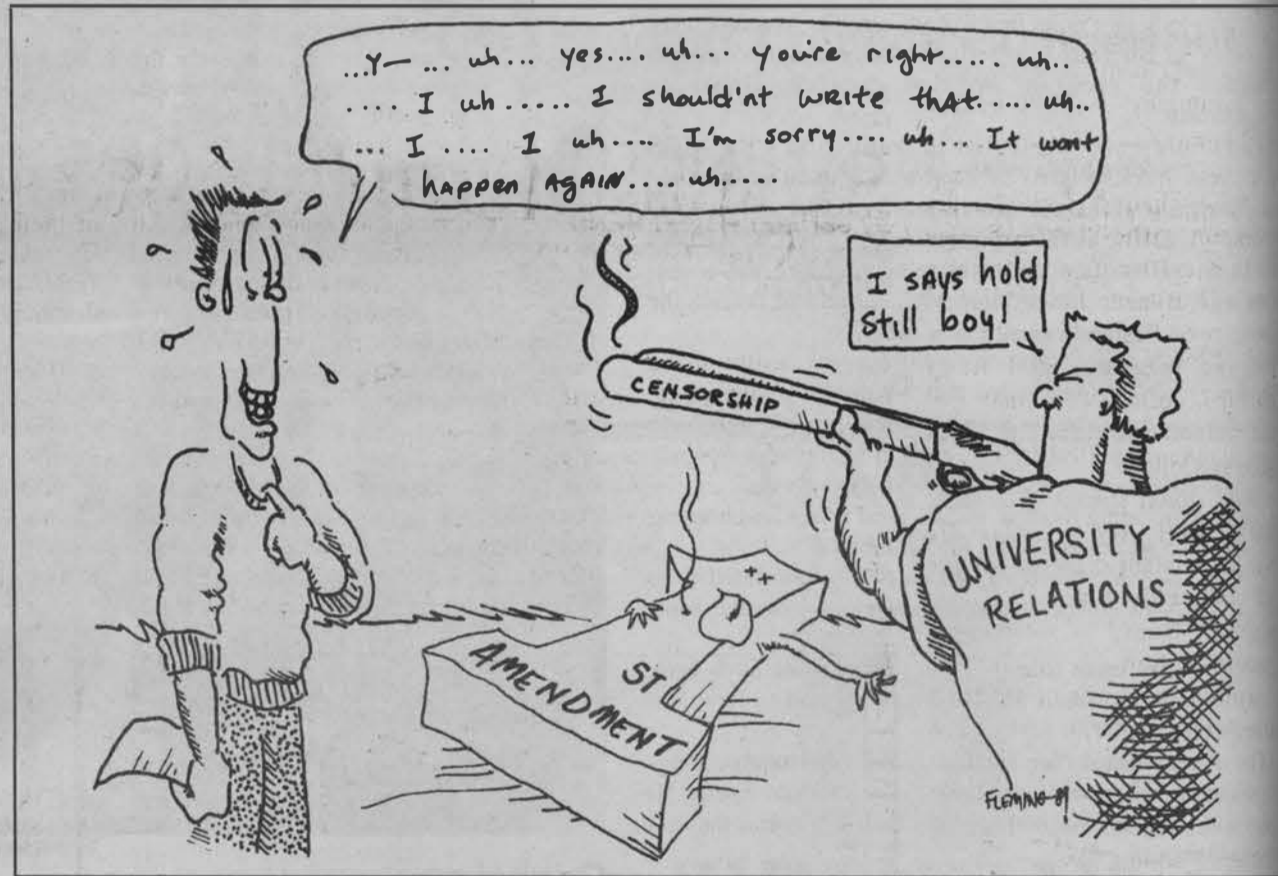 ...Y— ... uh... yes.... uh... you're right..... uh..
.... I uh..... I should'nt write that.... uh..
... I .... I uh.... I'm sorry.... uh... It wont
happen AGAIN.... uh......
I says hold
still boy!
CENSORSHIP
UNIVERSITY
RELATIONS
ST
AMENDMENT
FLEMING 89